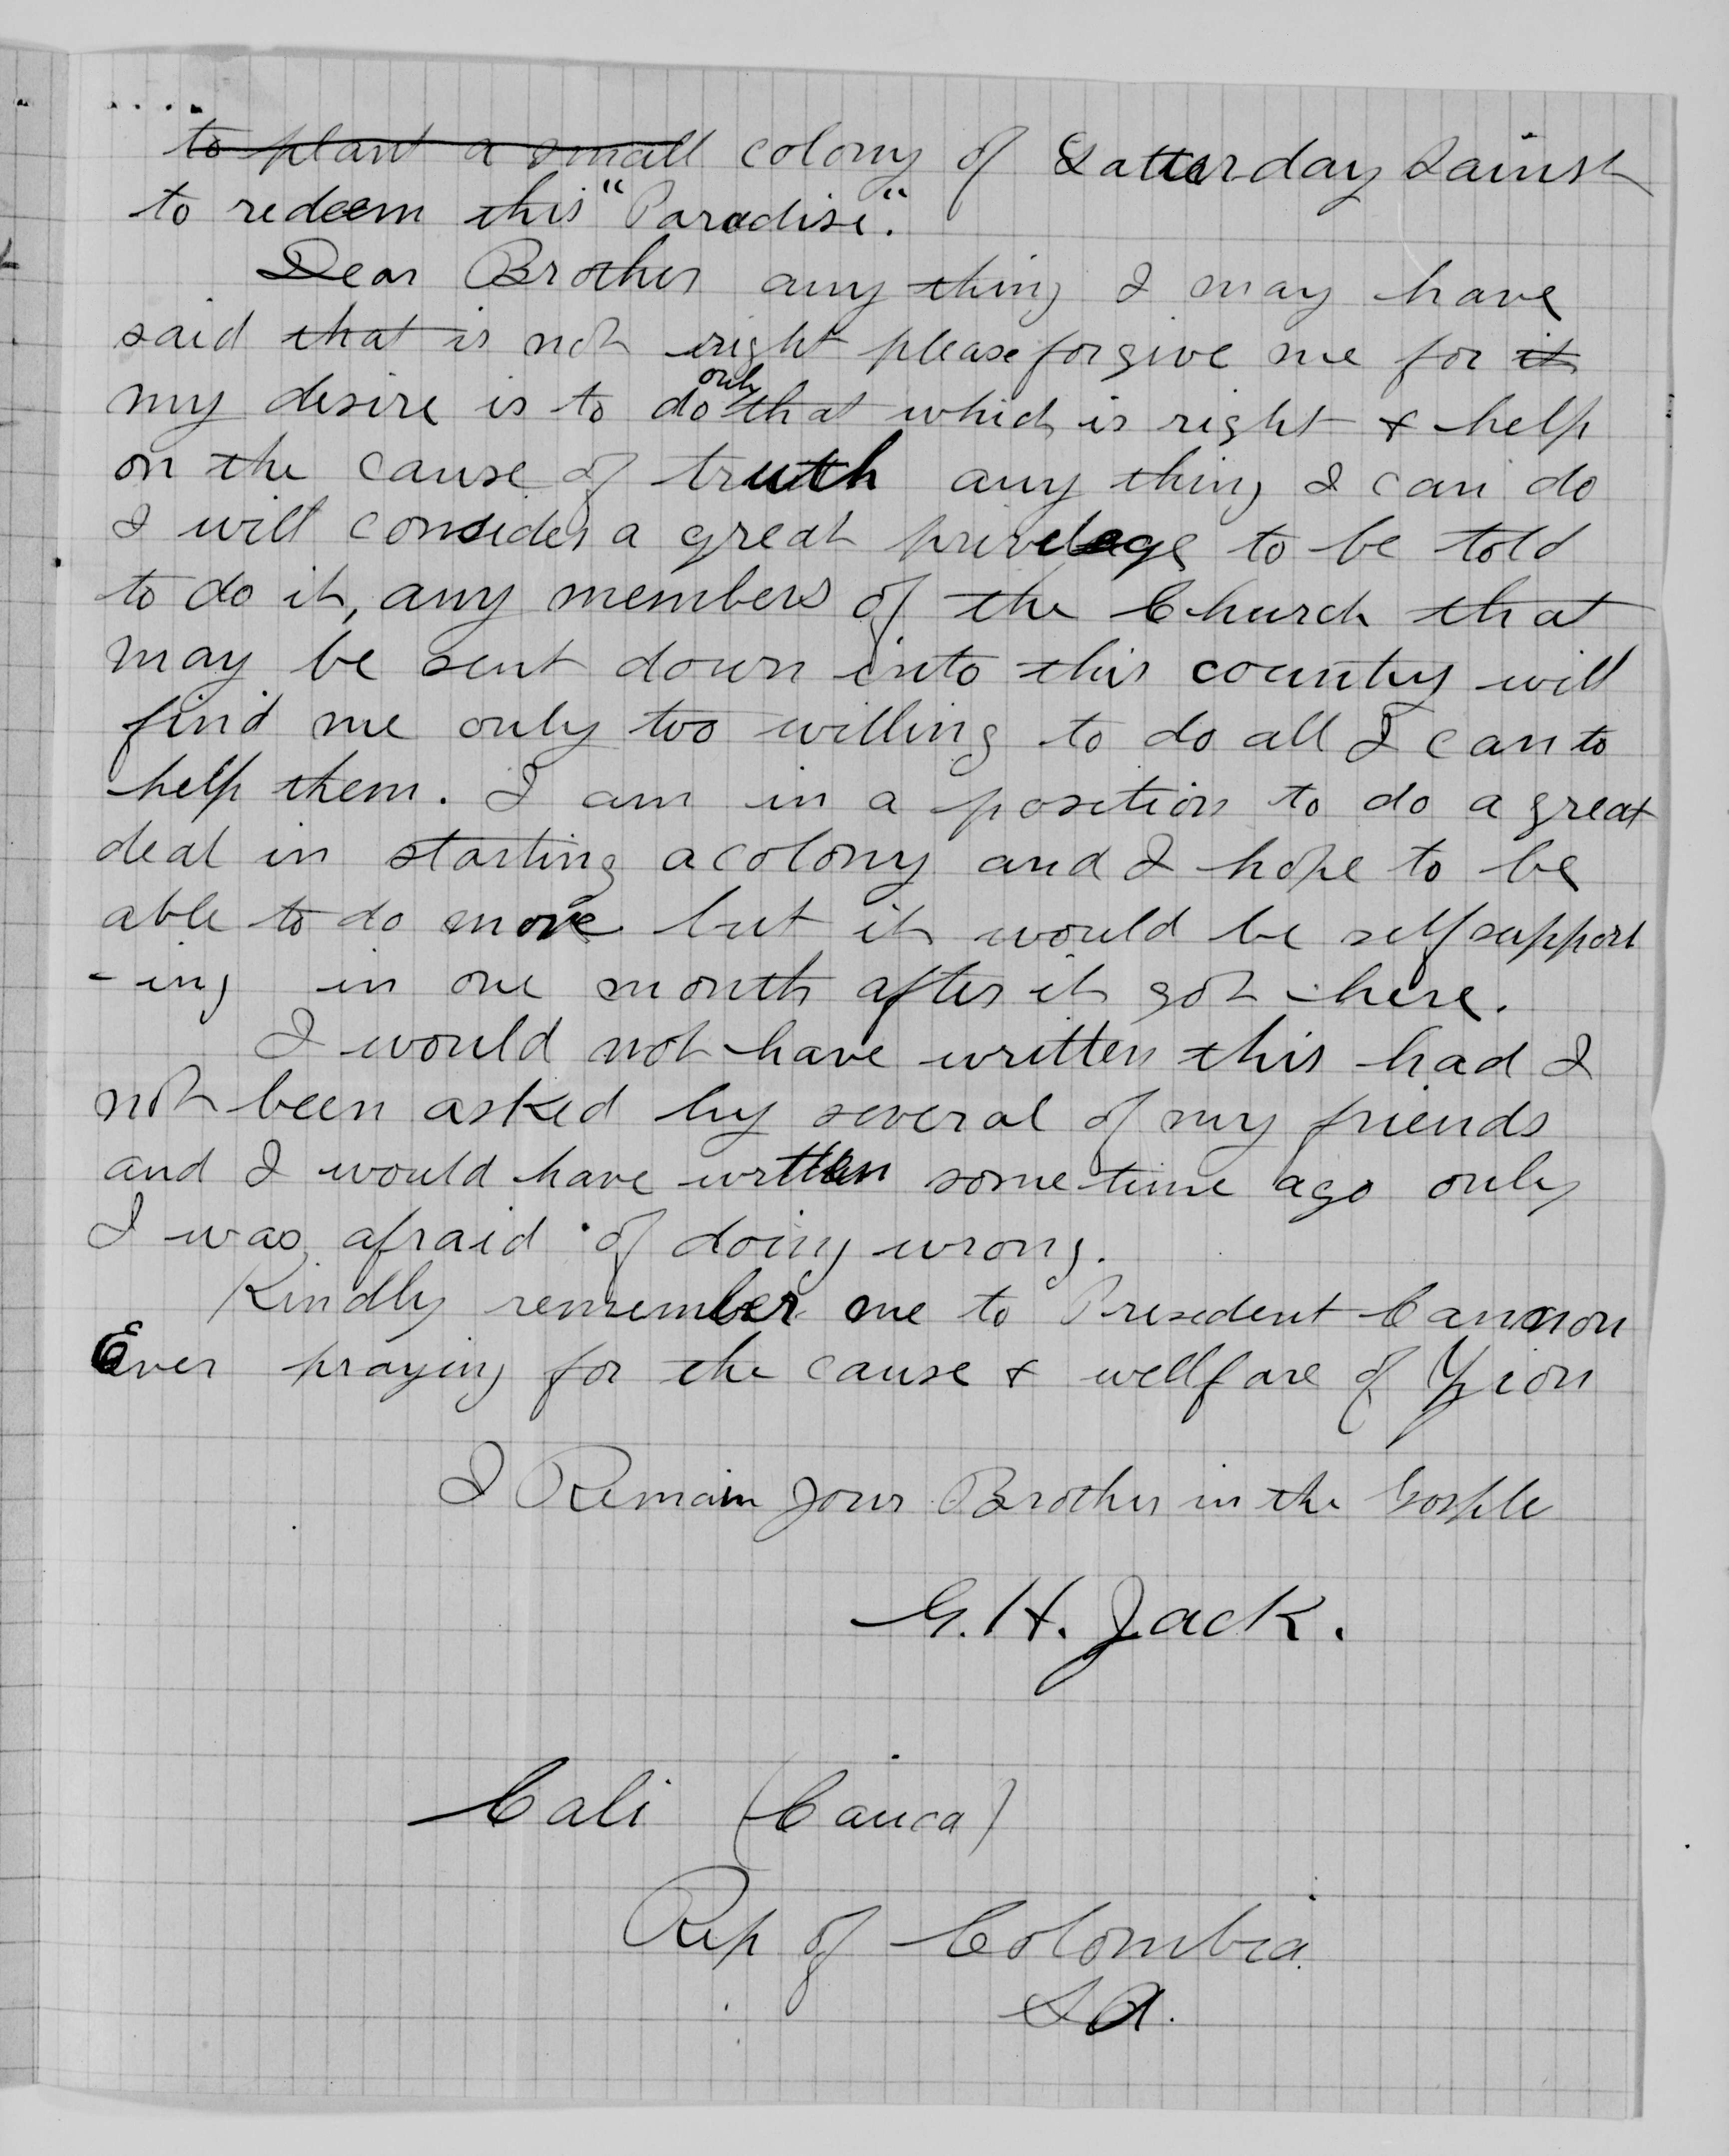 to plant a small colony of Latterday Saints
to redeem this "Paradise".
Dear Brother any thing I may have
said that is not right please forgive me for it
my desire is to do only that which is right & help
on the cause of truth any thing I can do
I will consider a great privelege to be told
to do it, any members of the Church that
may be sent down into this country will
find me only too willing to do all I can to
help them. I am in a position to do a great
deal in starting a colony and I hope to be
able to do more but it would be self support
-ing in one month after it got here.
I would not have written this had I
not been asked by several of my friends
and I would have written some time ago only
I was afraid of doing wrong.
Kindly remember me to President Cannon
Ever praying for the cause & wellfare of Zion
I Remain your Brother in the Gosple
G. H. Jack.
Cali (Cauca)
Rep of Colombia
S A.